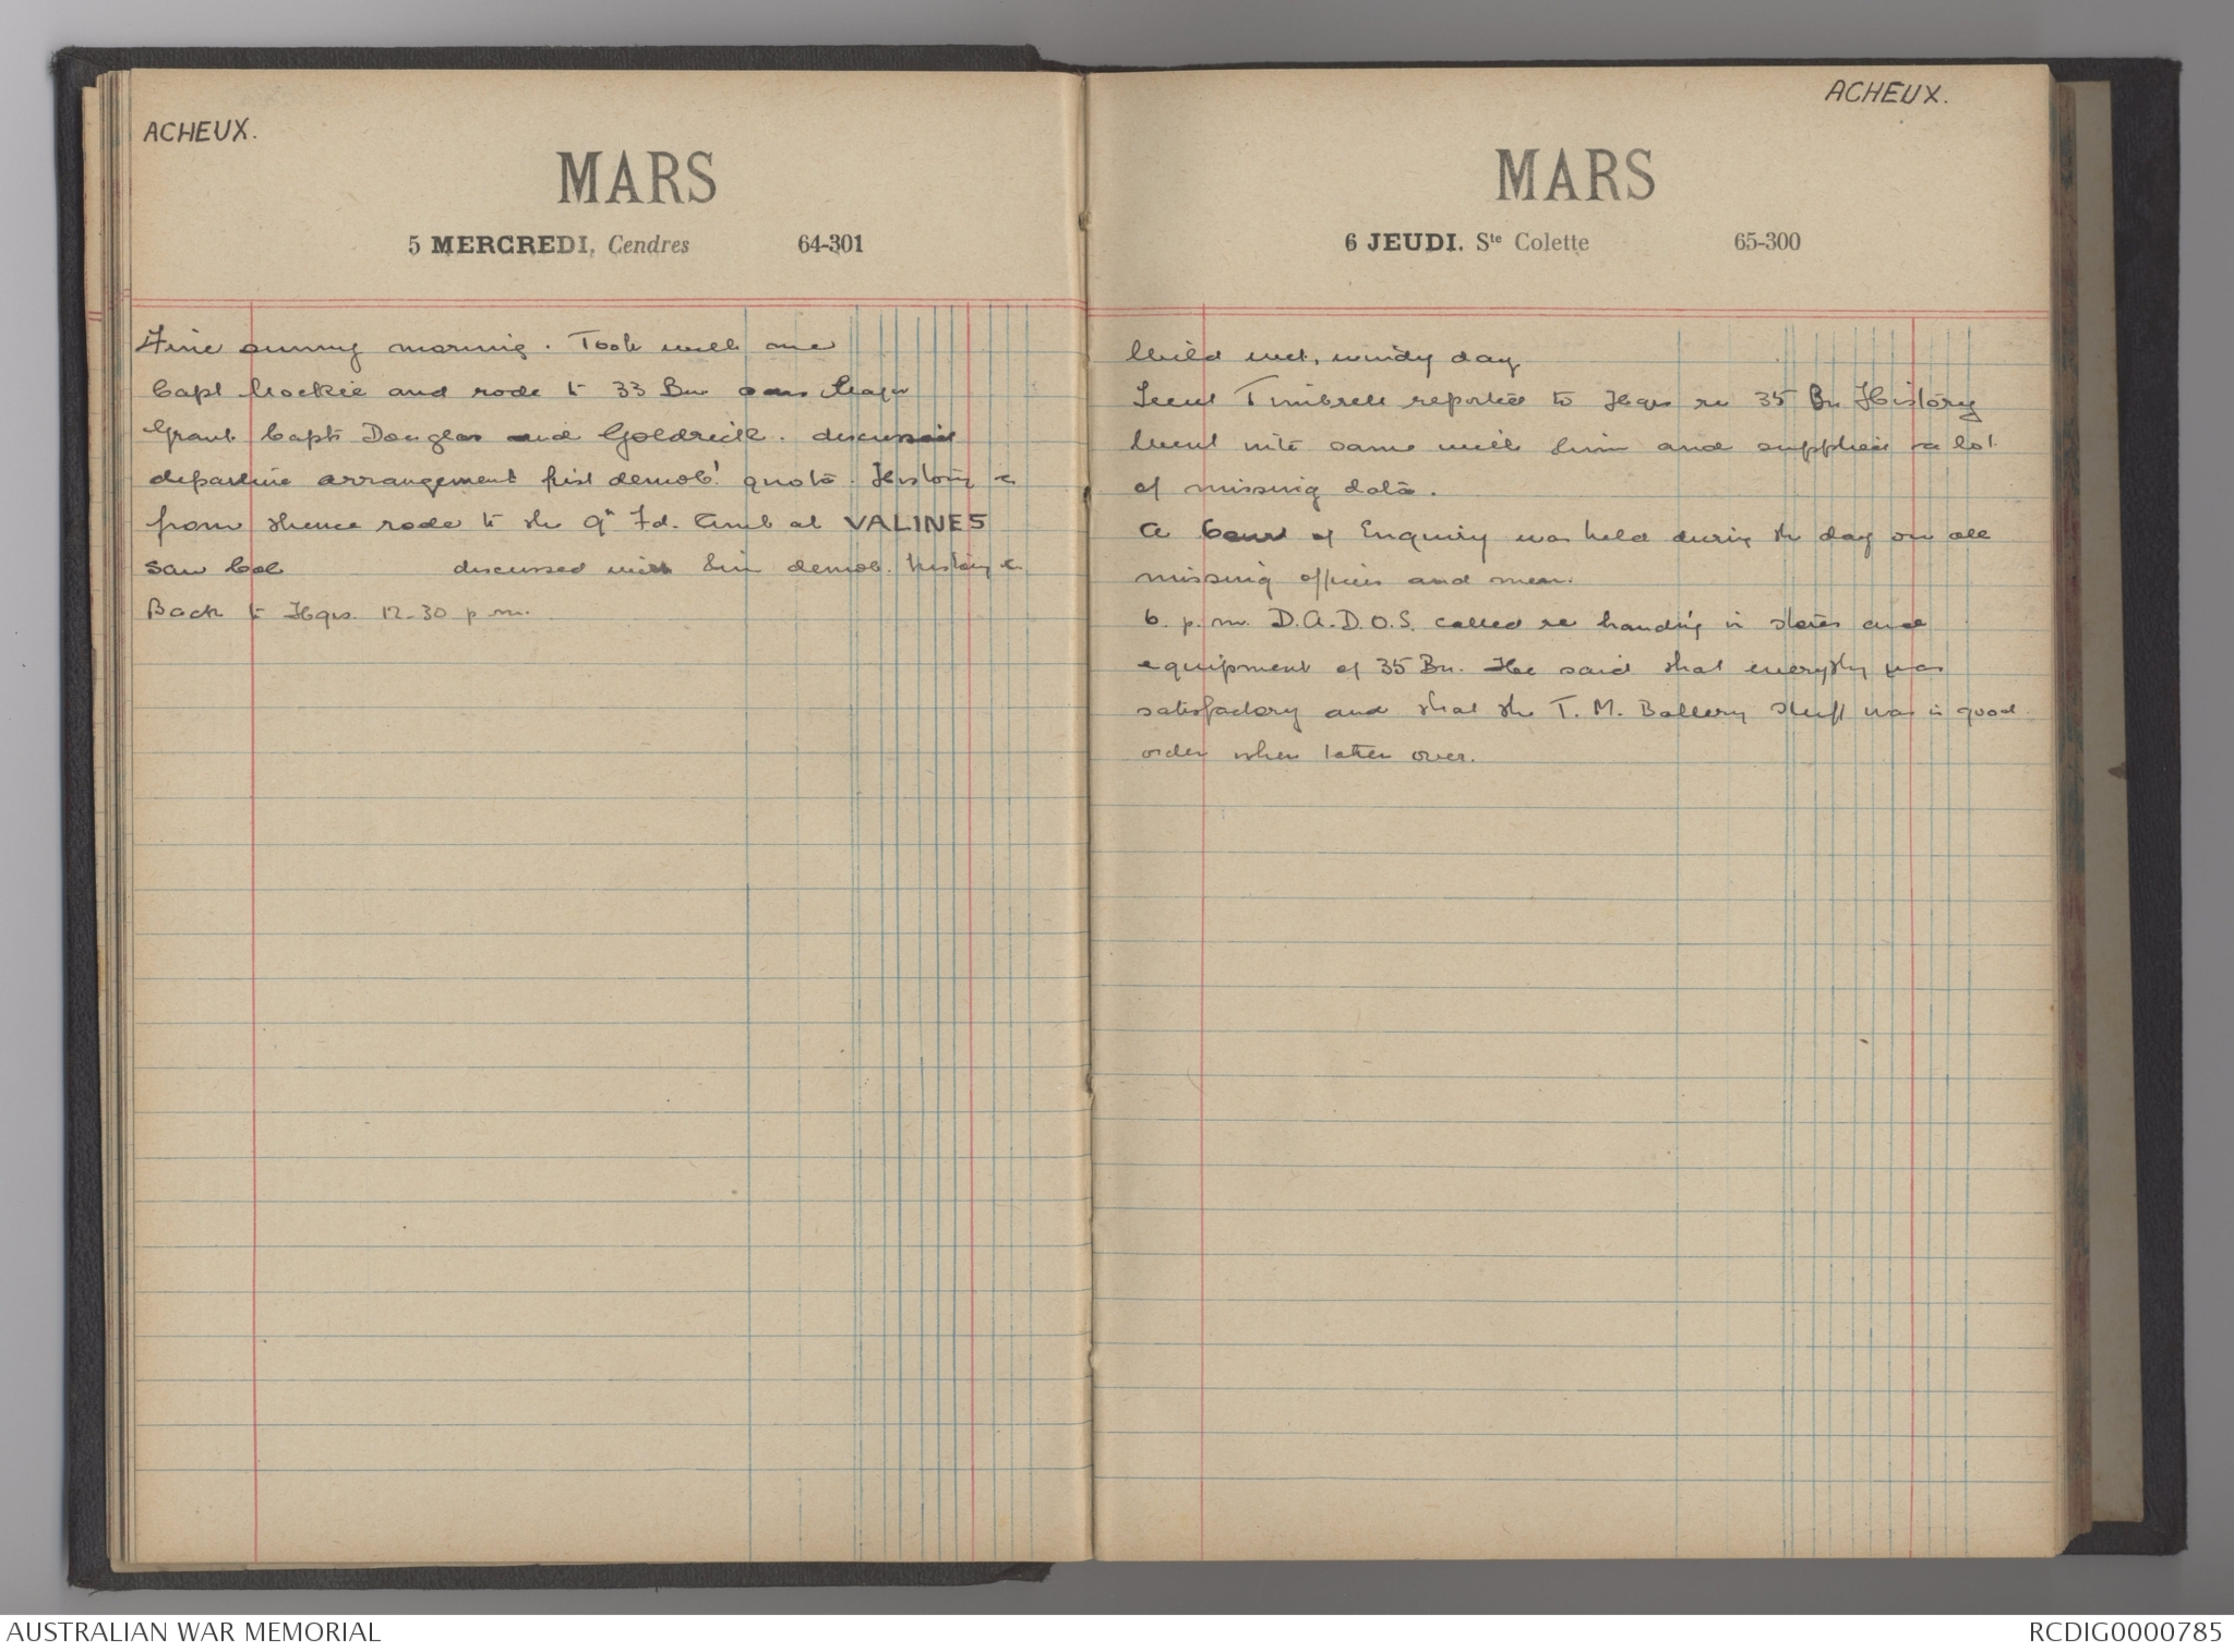 ACHEUX.
MARS
5 MERCREDI, Cendres 64-301
Fine sunny morning. Took with me
Capt Mackie and rode to 33 Bn saw Major
Grant Capts Douglas and Goldrick. discussed
departure arrangement first demob! quota. History &
from thence rode to the 9th Fd. Amb at VALINES
saw Col discussed with him demob. history &
Back to Hqrs. 12-30 p m.
ACHEUX.
MARS
6 JEUDI. Ste Colette 65-300
Mild wet, windy day
Lieut Timbrell reported to Hqrs re 35 Bn History
Went into same with him and supplied a lot
of missing data.
A Court of Enquiry was held during the day on all
missing officers and men.
6. p.m. D.A.D.O.S. called re handing in stores and
equipment of 35 Bn. He said that everythg was
satisfactory and that the T. M. Battery stuff was in good
order when taken over.
AUSTRALIAN WAR MEMORIAL
RCDIG0000785